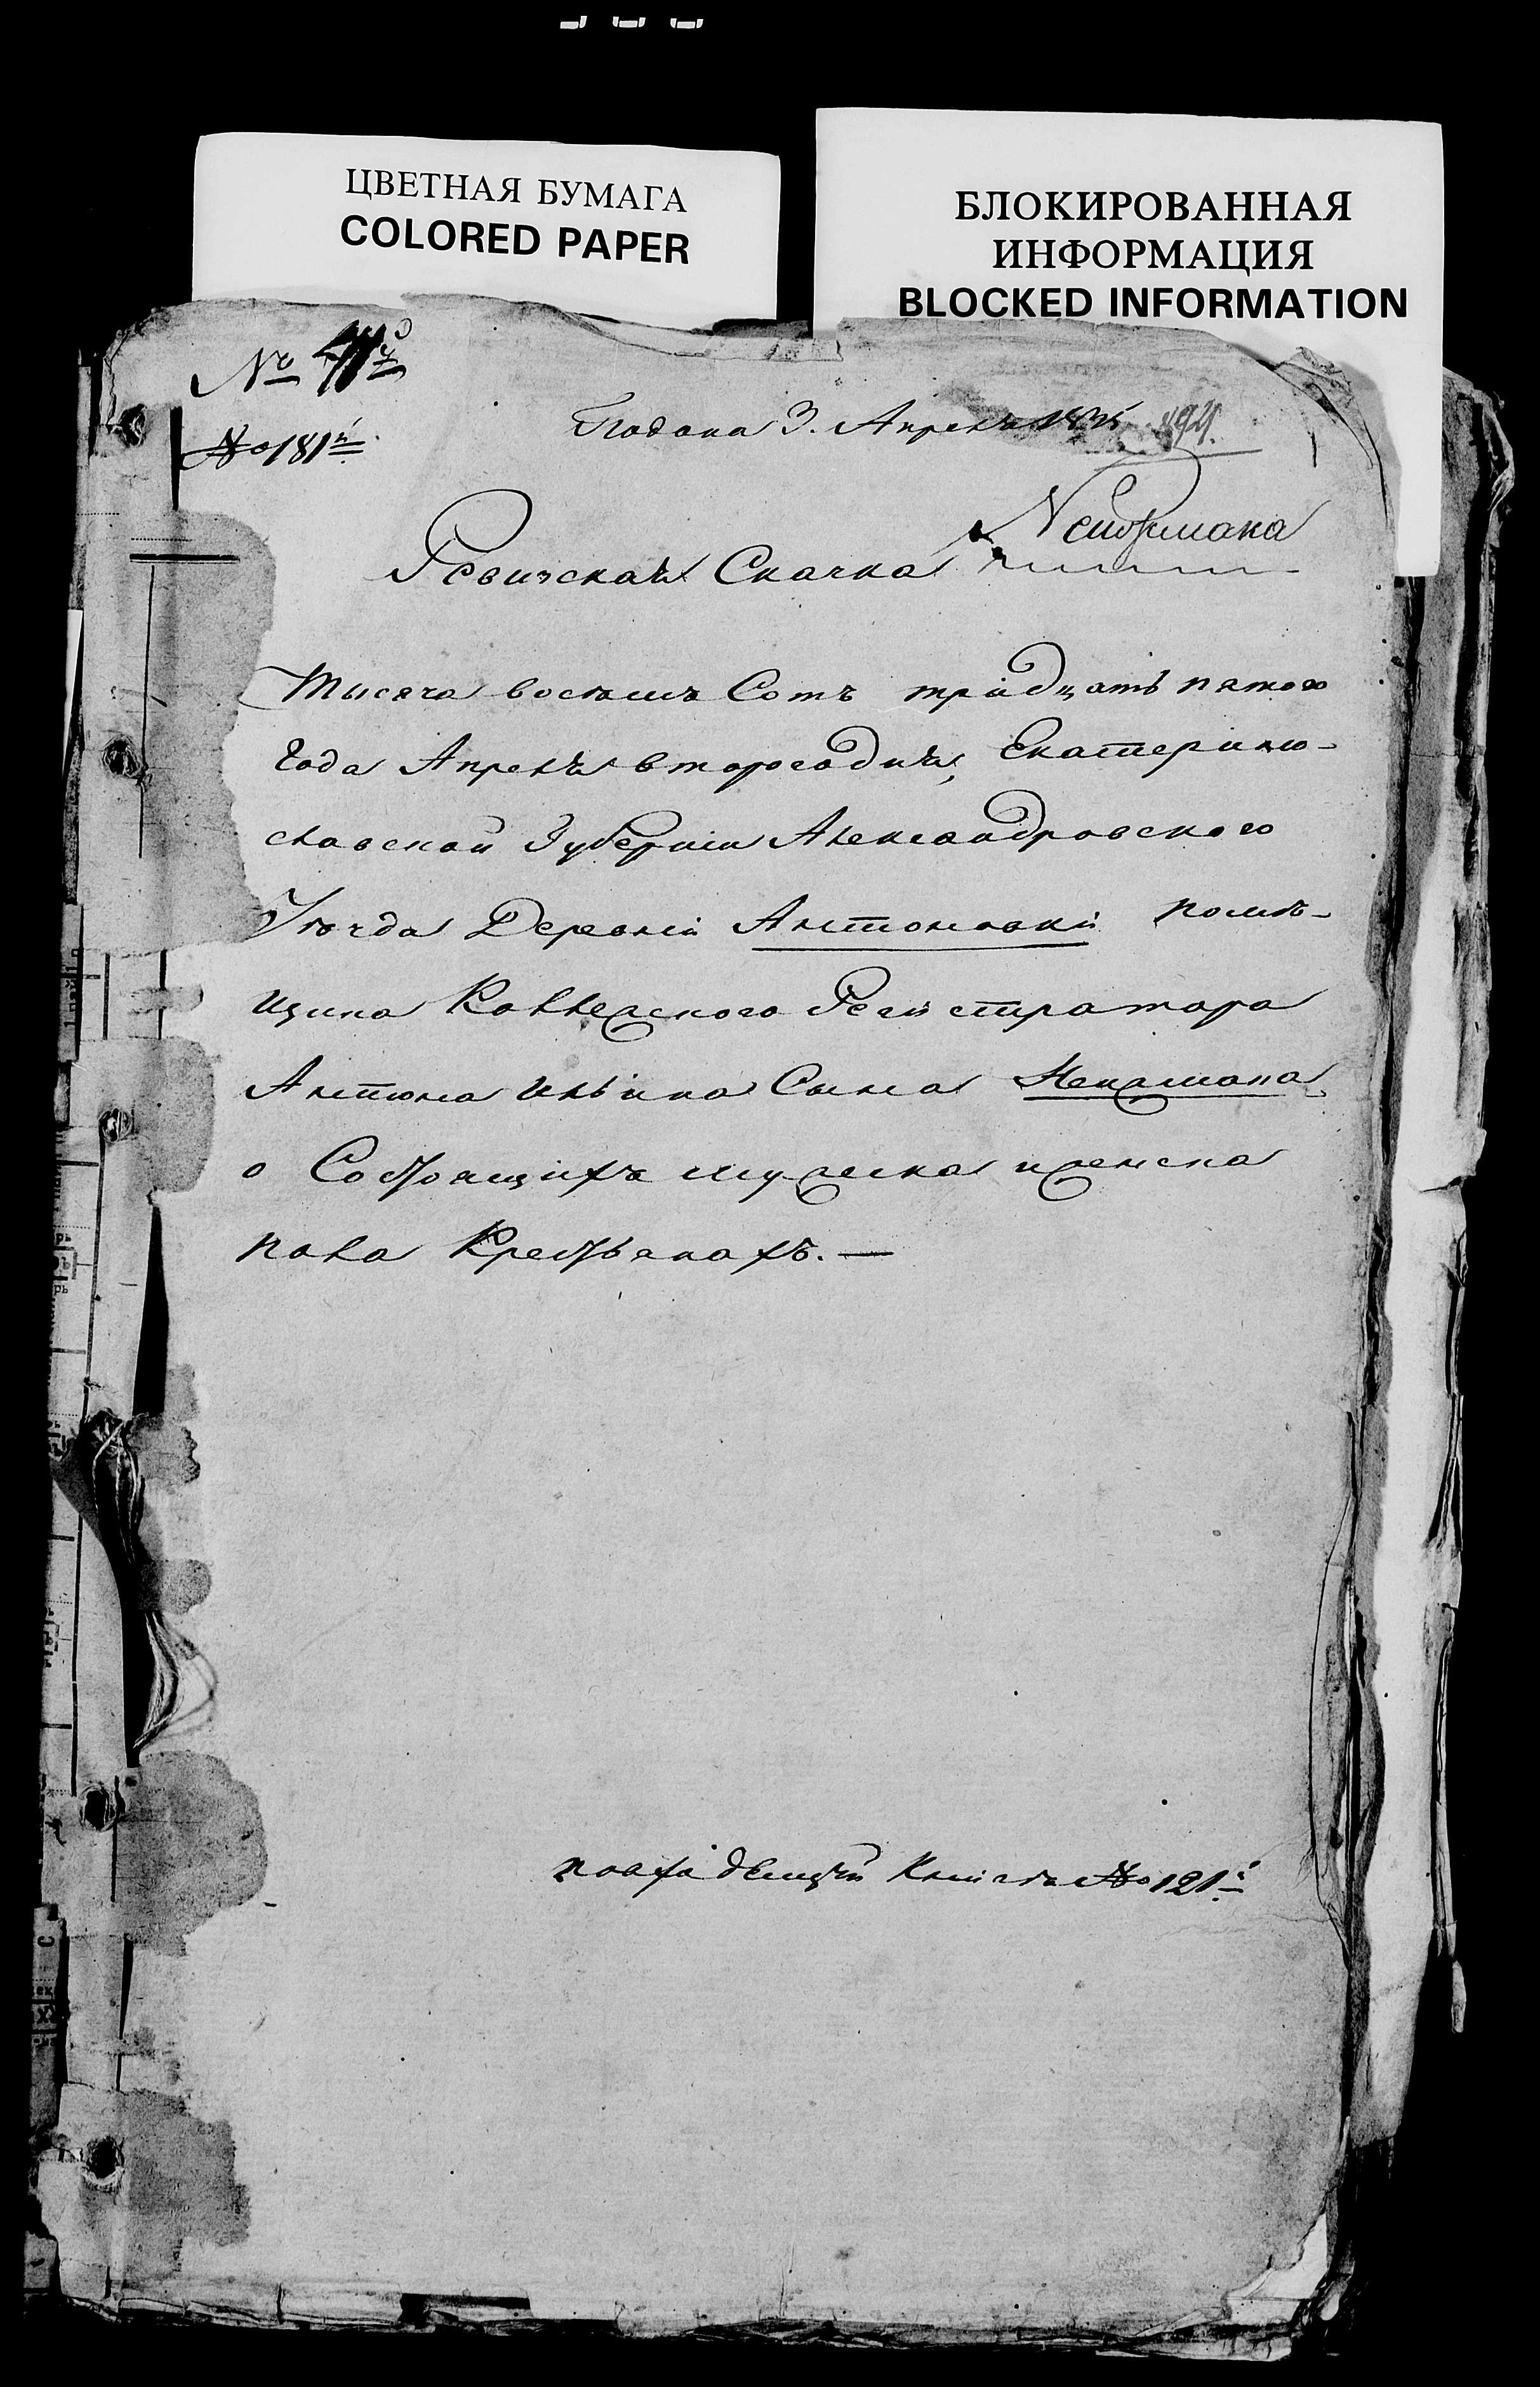 ЦВЕТНАЯ БУМАГА
COLORED PAPER
БЛОКИРОВАННАЯ
ИНФОРМАЦИЯ
BLOCKED INFORMATION
№
№ 181й
Подана 3. Апреля 1835
Ревизская Скаска
Тысяча восемъ Сотъ тридцать пятого
Года Апреля второго дня, Екатерино-
славской Губернии Александровского
Уезда Деревни Антоновки помѣ-
щика Коллежского Регистратора
Антона Ильина Сына
о Состоящихъ мужеска и женска
пола Крестьянахъ. —
повходящей Книги № 121й